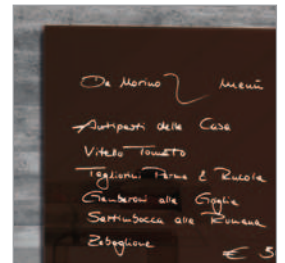 Da Marino Menü
Antipasti della Casa
Vitello Tonnato
Tagliorini Parma & Rucola
Gamberoni alla Griglia
Saltimbocca alla Romana
Zabaglione
€ 5